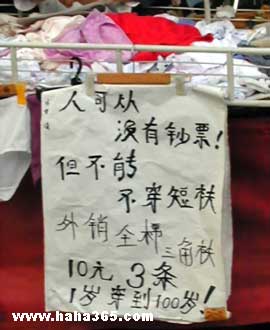 人可从
没有钞票!
但不能
不穿短衭
外销全棉
三角衭
10元 3条
1岁穿到100岁!
www.haha365.com